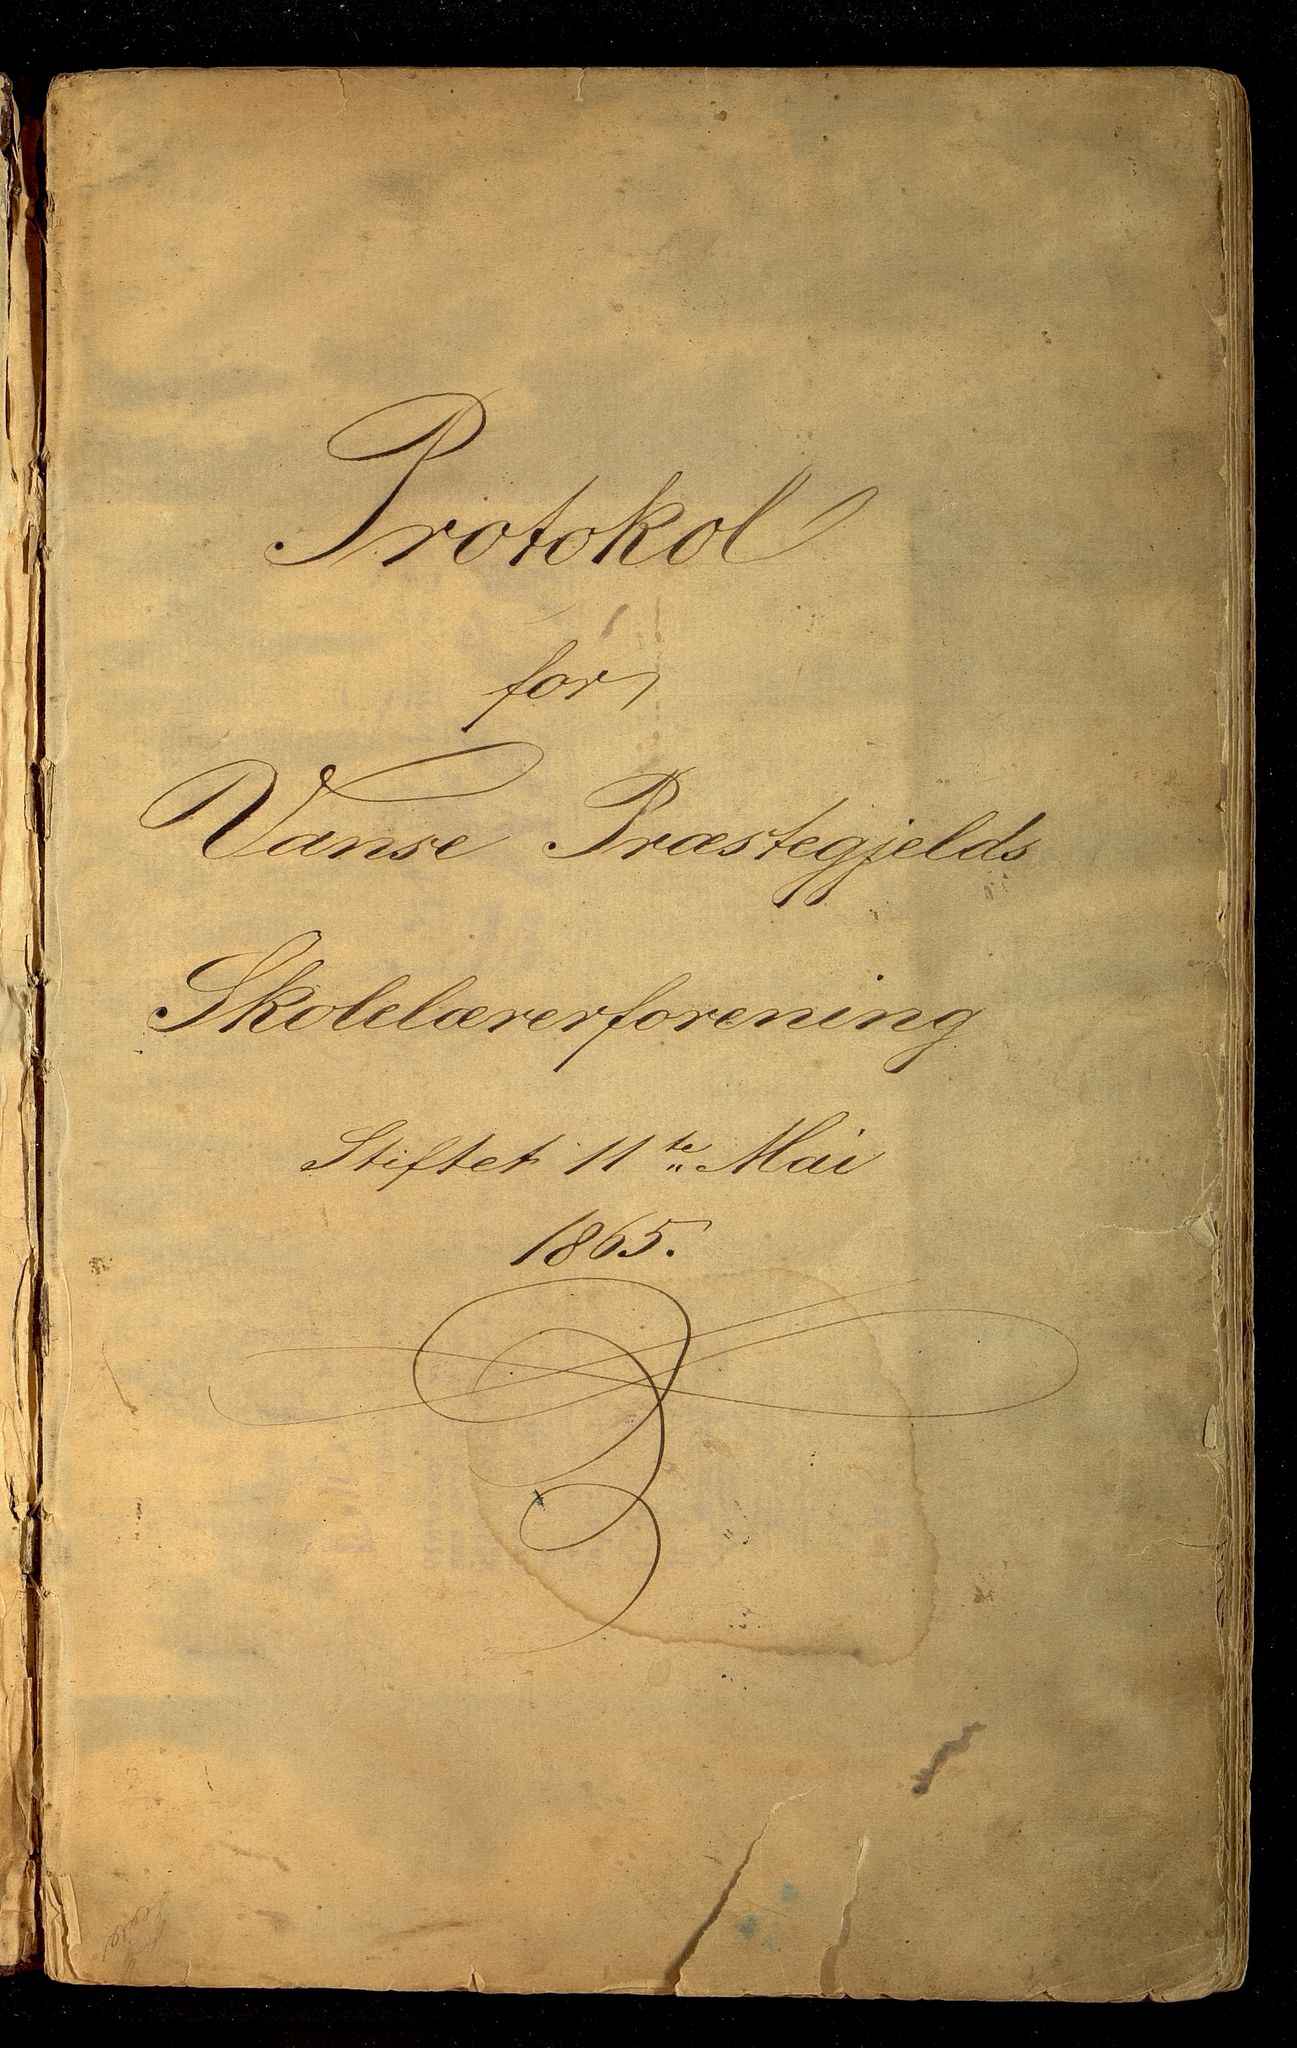 Protokol
for
Vanse Præstegjelds
Skolelærerforening
Stiftet 11te Mai
1865.